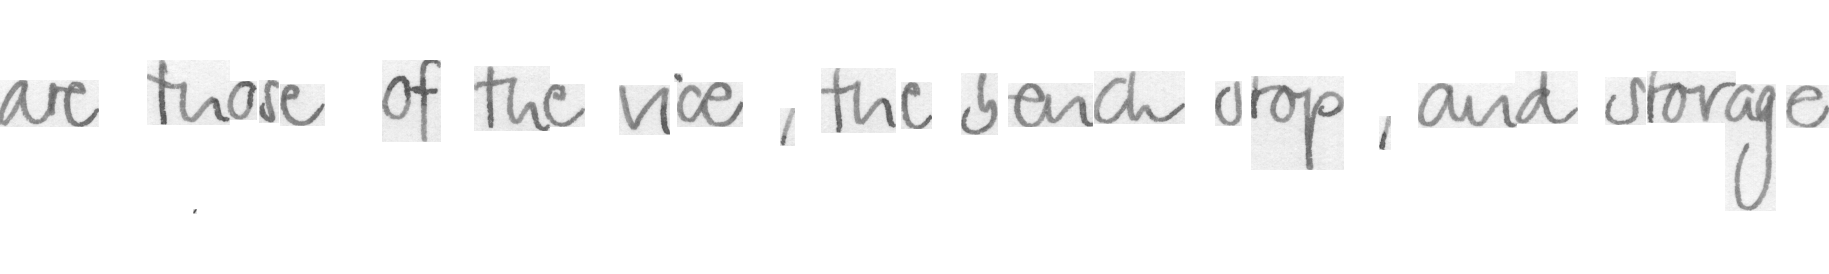 are those of the vice, the bench stop, and storage